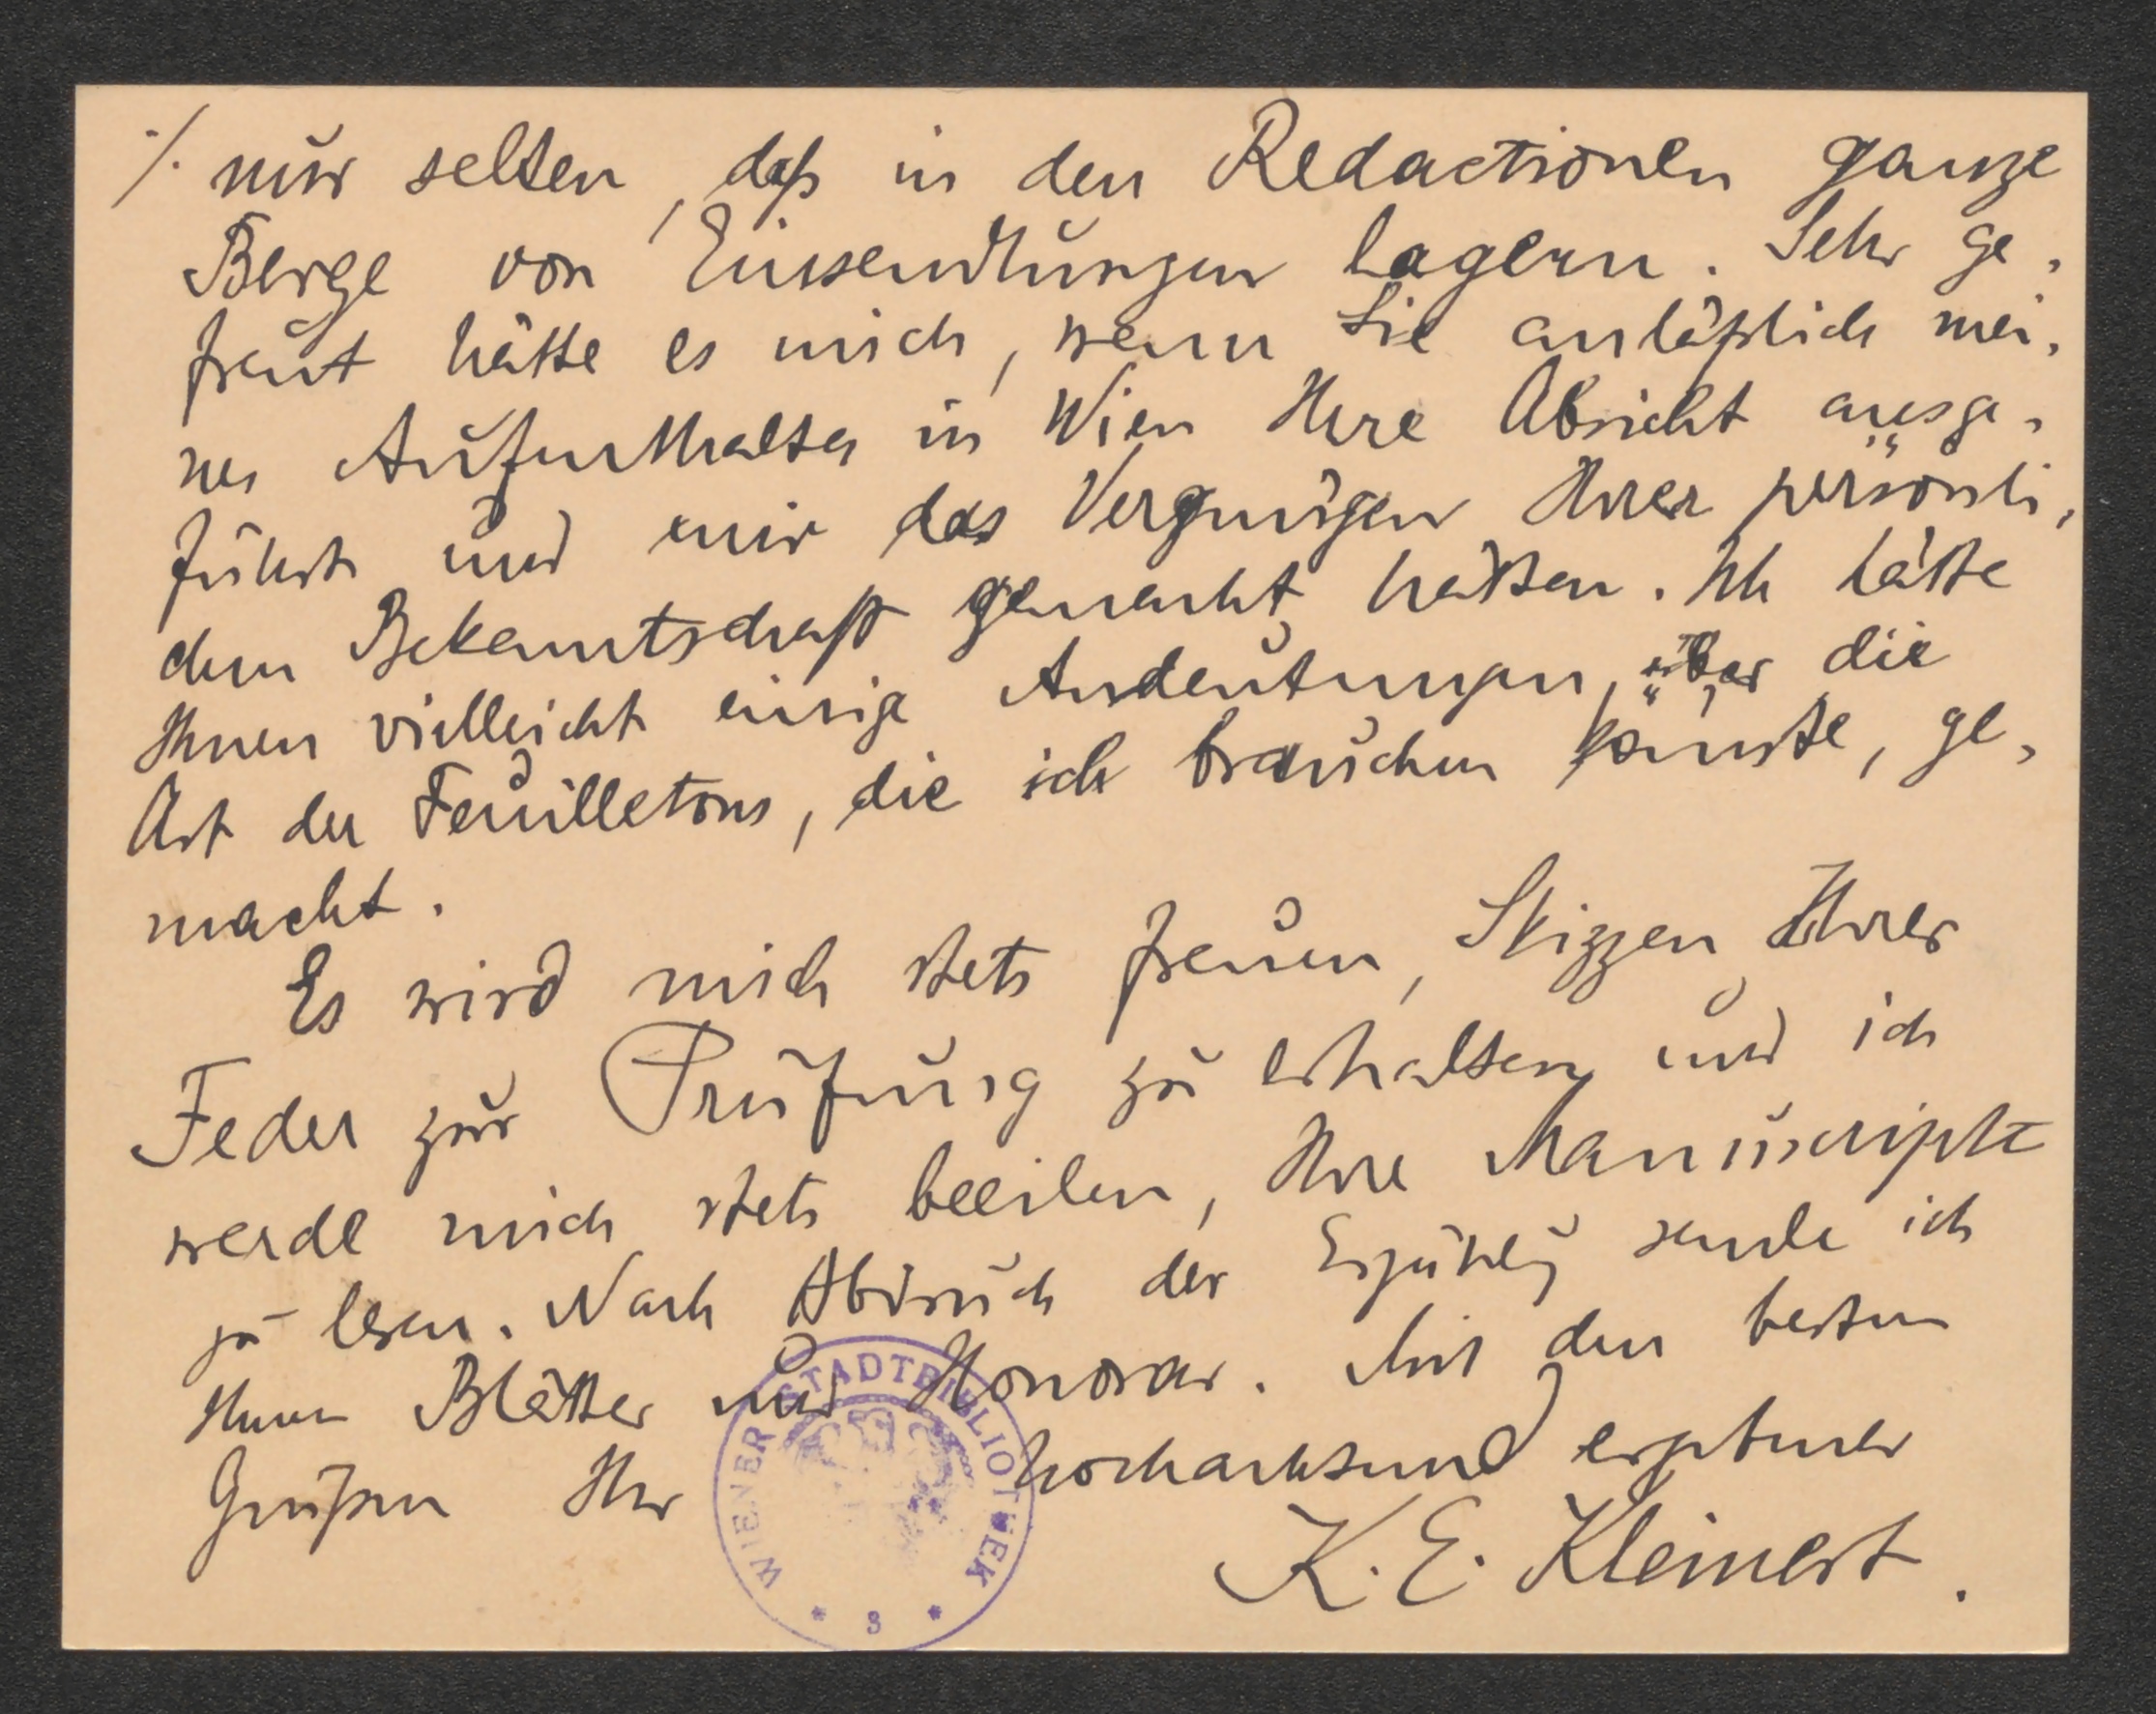 ./. nur selten, daß in den Redactionen ganze
Berge von Einsendungen lagern. Sehr ge-
freut hätte es mich, wenn Sie anläßlich mei-
nes Aufenthaltes in Wien Ihre Absicht ausge-
führt und mir das Vergnügen Ihrer persönli-
chen Bekanntschaft gemacht hätten. Ich hätte
Ihnen vielleicht einige Andeutungen, über die
Art der Feuilletons, die ich brauchen könnte, ge-
macht.
Es wird mich stets freuen, Skizzen Ihrer
Feder zur Prüfung zu erhalten und ich
werde mich stets beeilen, Ihre Manuscripte
zu lesen. Nach Abdruck der Erzählg sende ich
Ihnen Blätter und Honorar. Mit den besten
Grüßen Ihr hochachtend ergebener
K. E. Kleinert.
WIENER STADTBIBLIOTHEK
* 3 *